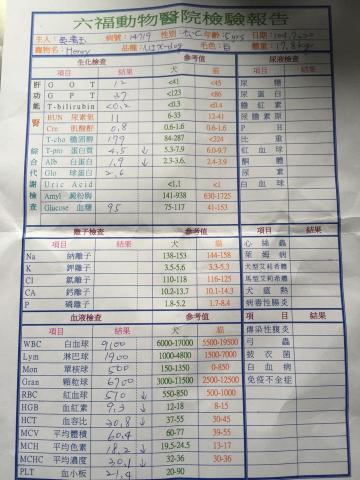 六福動物醫院檢驗報告
主人: 病號: 14719 性別: 年齡: 5yrs 日期:
寵物名: Honey 品種: Mix-dog 毛色: 白 體重: 17.8kg
生化檢查 參考值 尿液檢查
項目 結果 犬 貓 項目 結果
肝功能 腎 綜合代謝檢查
G O T 12 <41 <45 尿糖
G P T 37 <123 <86 尿蛋白
T-bilirubin <0.2 <0.3 <0.4 膽紅素
BUN 尿素氮 11 6-33 12-41 尿膽素原
Cre 肌酸酐 0.8 0.6-1.6 0.6-1.6 P H
T-cho 膽固醇 199 84-287 <224 比重
T-pro 蛋白質 4.5 ↓ 5.3-7.9 6.0-9.7 紅血球
Alb 白蛋白 1.9 ↓ 2.3-3.6 2.4-3.9 酮體
Glo 球蛋白 2.6 尿素
Uric Acid <1.1 <1 白血球
Amyl 澱粉酶 141-938 630-1725
Glucose 血糖 95 75-117 41-153
離子檢查 參考值 項目 結果
項目 結果 犬 貓 心絲蟲
Na 鈉離子 138-153 144-158 萊姆病
K 鉀離子 3.5-5.6 3.3-5.3 犬型艾莉希體
Cl 氯離子 110-118 116-125 馬型艾莉希體
CA 鈣離子 10.2-13.7 10.1-14.3 犬瘟熱
P 磷離子 1.8-5.2 1.7-8.4 病毒性腸炎
血液檢查 參考值 項目 結果
項目 結果 犬 貓 傳染性腹炎
WBC 白血球 9100 6000-17000 5500-19500 弓蟲
Lym 淋巴球 1900 1000-4800 1500-7000 披衣菌
Mon 單核球 500 150-1350 0-850 白血病
Gran 顆粒球 6700 3000-11500 2500-12500 免疫不全症
RBC 紅血球 510 ↓ 550-850 500-1000
HGB 血紅素 9.3 ↓ 12-18 8-15
HCT 血容比 30.8 ↓ 37-55 30-45
MCV 平均體積 60.4 60-77 39-55
MCH 平均色素 18.2 ↓ 19.5-24.5 13-17
MCHC 平均濃度 30.1 ↓ 32-36 30-36
PLT 血小板 21.4 20-90